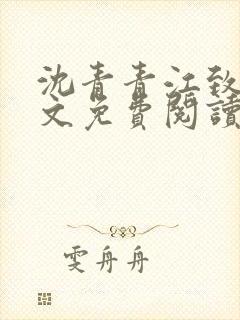 沈青青江致
文免費閱讀
雯舟舟